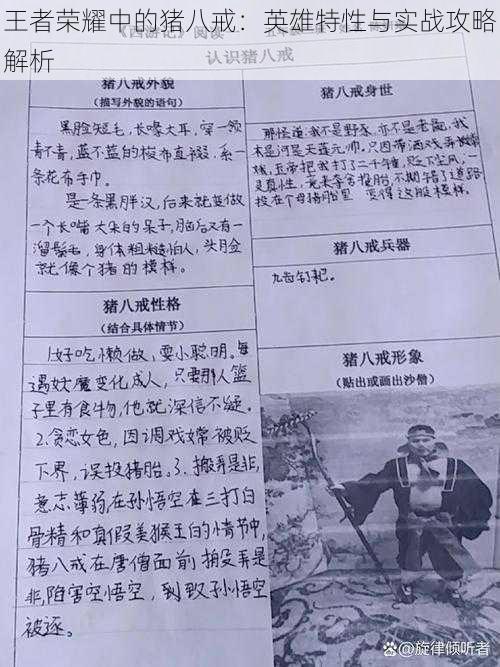 王者荣耀中的猪八戒：英雄特性与实战攻略
解析
《西游记》阅读
认识猪八戒
猪八戒外貌
（描写外貌的语句）
黑脸短毛，长喙大耳，穿一领
青不青，蓝不蓝的梭布直裰，系一
条花布手巾。
是一条黑胖汉，后来就变做
一个长嘴大耳的呆子，脑后又有一
溜鬃毛，身体粗糙怕人，头脸
就像个猪的模样。
猪八戒性格
（结合具体情节）
1.好吃懒做，耍小聪明。每
遇妖魔变化成人，只要那人篮
子里有食物，他就深信不疑。
2.贪恋女色，因调戏嫦被贬
下界，误投猪胎。3.搬弄是非，
意志薄弱，在孙悟空在三打白
骨精和真假美猴王的情节中，
猪八戒在唐僧面前搬弄是
非，陷害空悟空，到致孙悟空
被逐。
猪八戒身世
那怪道：我不是野豕，亦不是老彘，我
本是河是天蓬元帅，只因带酒戏弄嫦娥，
玉帝把我打了二千锤，贬下尘凡，一
灵真性，竟来夺舍投胎，不期错了道路，
投在个母猪胎里，变得这般模样。
猪八戒兵器
九齿钉耙。
猪八戒形象
（贴出或画出沙僧）
旋律倾听者